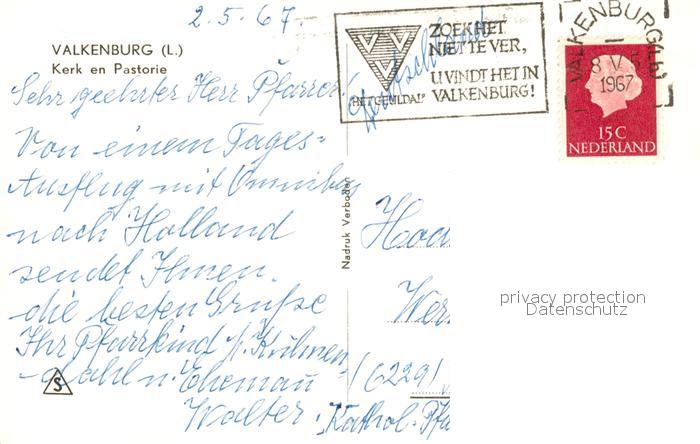 2.5.67.
VALKENBURG (L.)
Kerk en Pastorie
Sehr geehrter Herr Pfarrer!
Von einem Tages-
Ausflug mit Omnibus
nach Holland
sendet Ihnen
die besten Grüße
Ihr Pfarrkind
Eheman
Walter.
ZOEK HET
NIET TE VER,
U VINDT HET IN
VALKENBURG!
"HET GEULDAL"
VALKENBURG (Lb)
8 V
1967
15 C
NEDERLAND
Nadruk Verboden
(6229)
Kathol. Pfa
privacy protection
Datenschutz
S